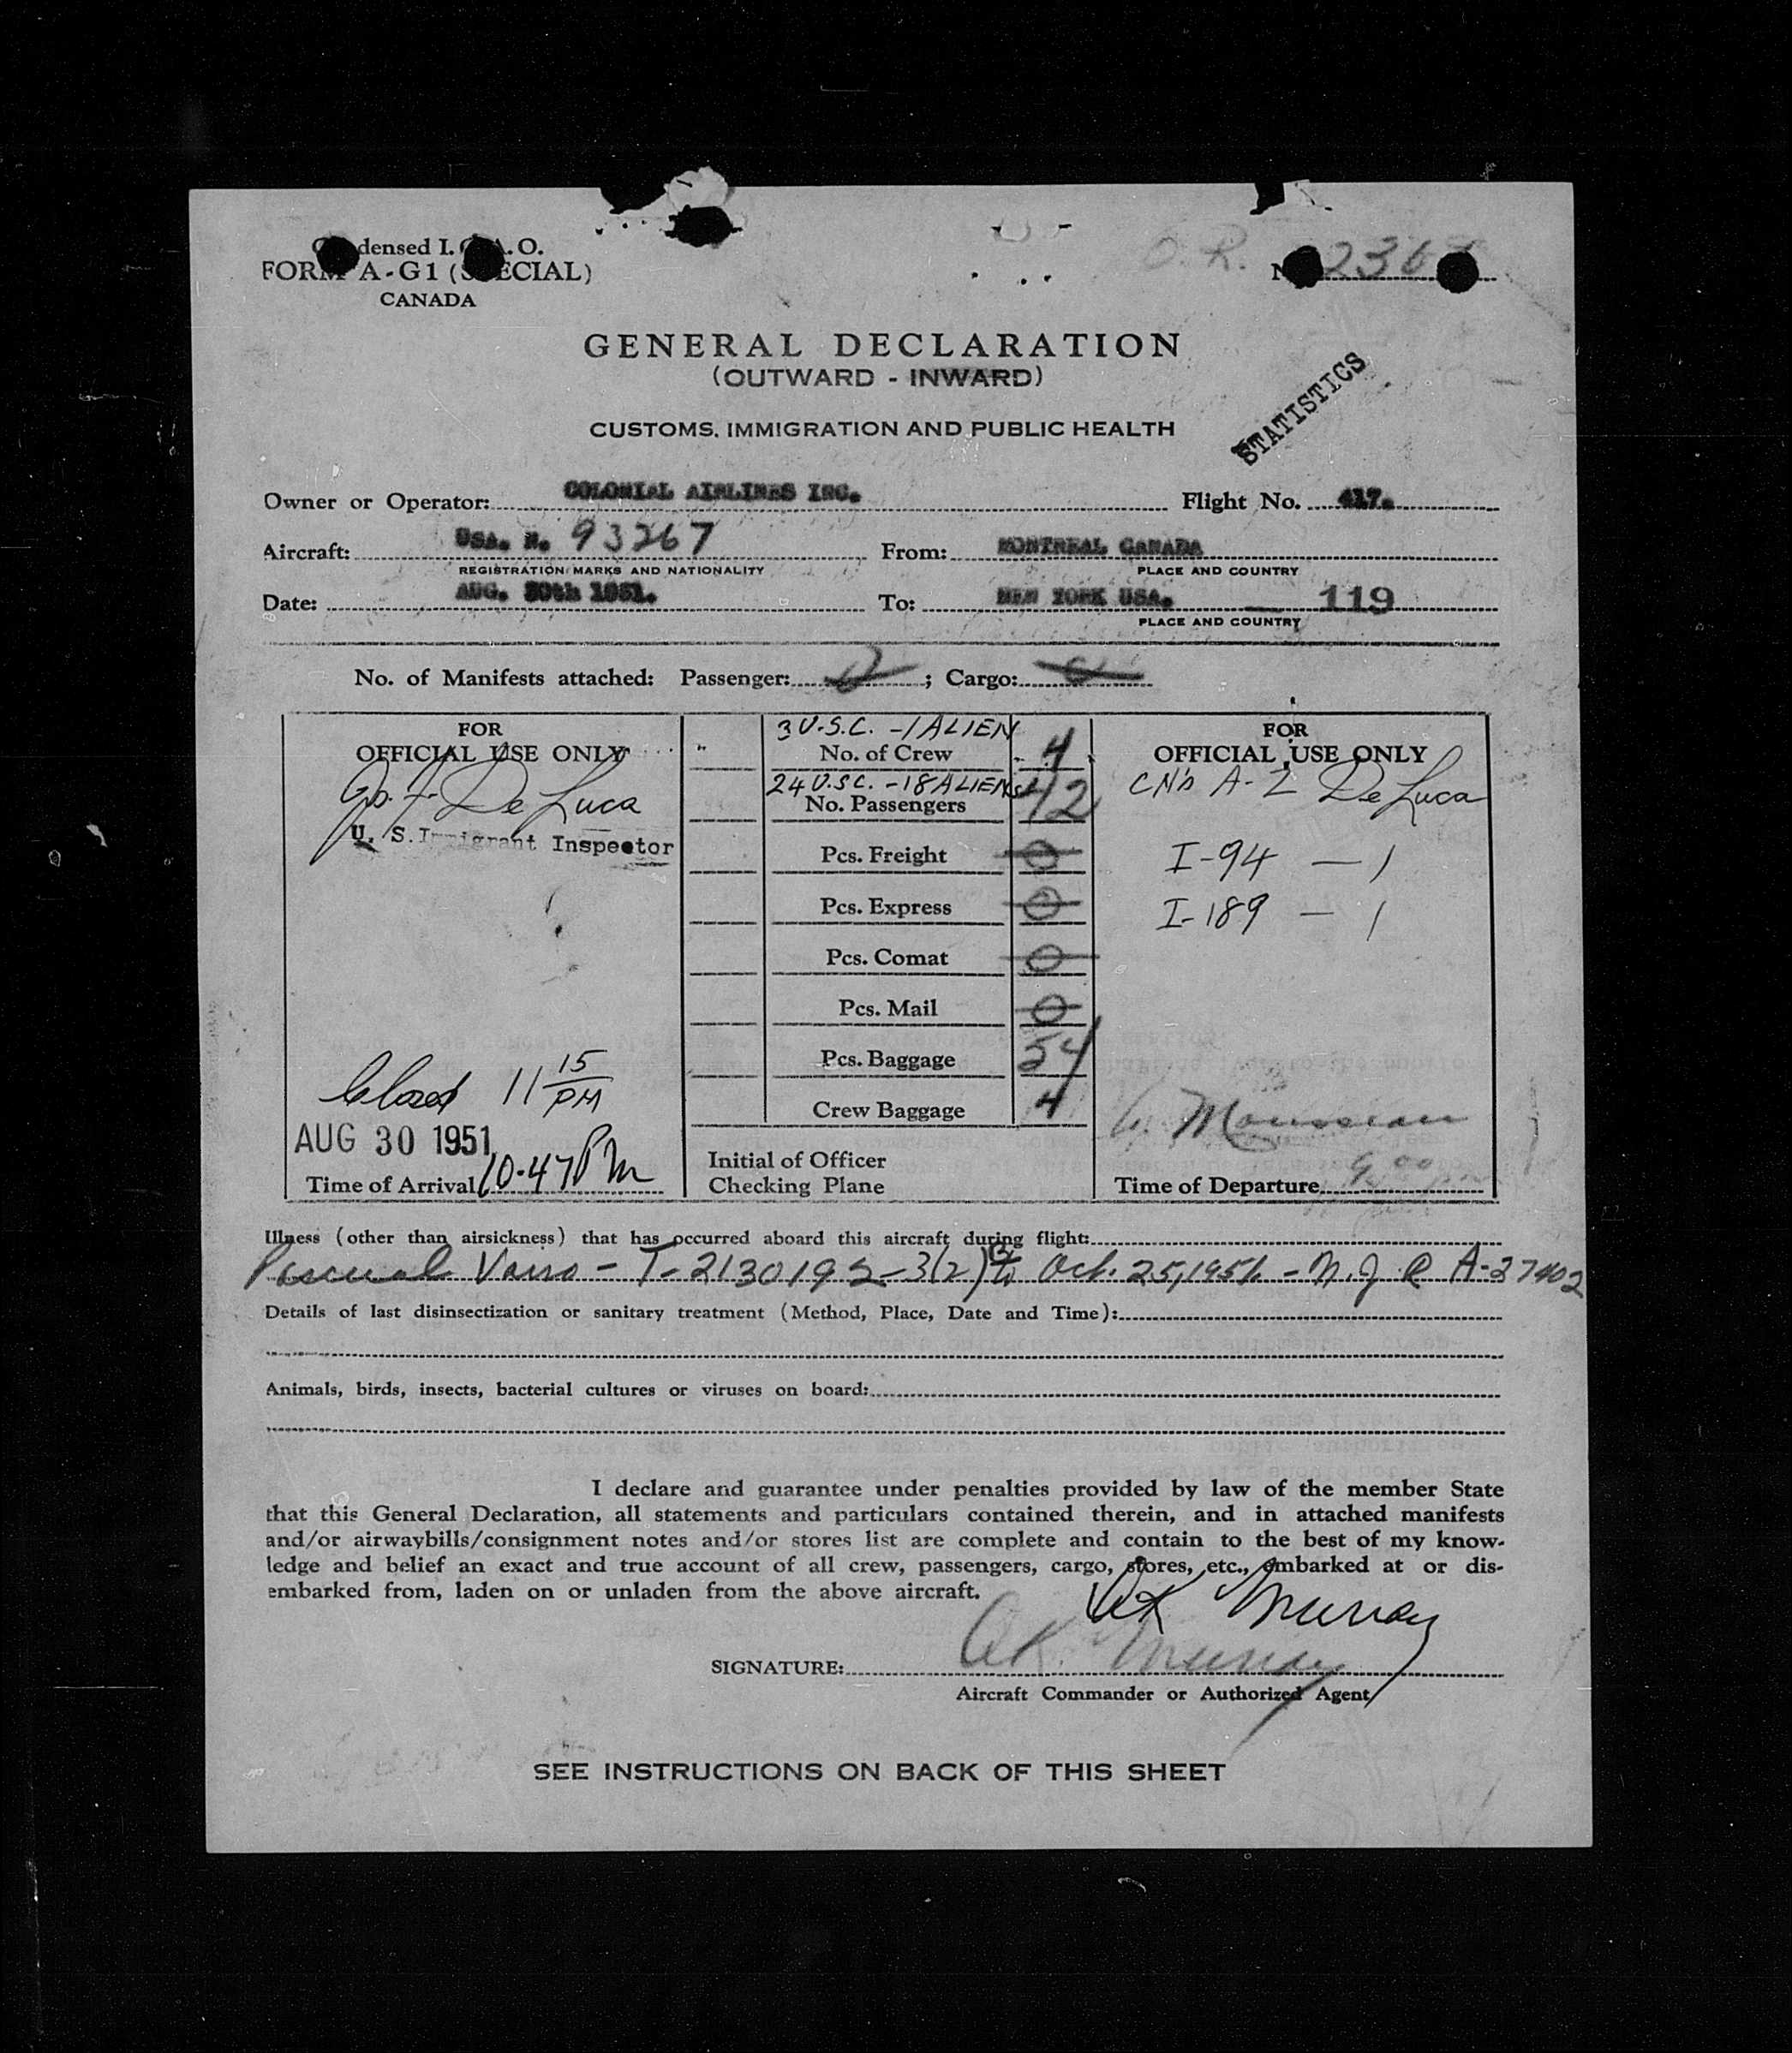 densed I. A.O.
FORM A-G1 (SPECIAL)
CANADA
O. R.
236
GENERAL DECLARATION
(OUTWARD - INWARD)
CUSTOMS, IMMIGRATION AND PUBLIC HEALTH
STATISTICS
Owner or Operator: COLONIAL AIRLINES INC. Flight No. 417.
Aircraft: USA. N. 93267 From: MONTREAL CANADA
REGISTRATION MARKS AND NATIONALITY PLACE AND COUNTRY
Date: AUG. 30th 1951. To: NEW YORK USA. 119
PLACE AND COUNTRY
No. of Manifests attached: Passenger: ; Cargo:
FOR
OFFICIAL USE ONLY
De Luca
U. S. Immigrant Inspector
Closed 11 15 PM
AUG 30 1951
Time of Arrival 10.47 PM
3 U.S.C. - 1 ALIEN
No. of Crew 4
24 U.SC. - 18 ALIENS
No. Passengers 42
Pcs. Freight 0
Pcs. Express 0
Pcs. Comat 0
Pcs. Mail 0
Pcs. Baggage 54
Crew Baggage 4
Initial of Officer
Checking Plane
FOR
OFFICIAL USE ONLY
A-Z De Luca
I-94 — 1
I-189 — 1
Mousseau
Time of Departure 9 00
Illness (other than airsickness) that has occurred aboard this aircraft during flight:
T-2130192-3(2) to Oct. 25, 1951. - N.J. R A-37402
Details of last disinsectization or sanitary treatment (Method, Place, Date and Time):
Animals, birds, insects, bacterial cultures or viruses on board:
I declare and guarantee under penalties provided by law of the member State
that this General Declaration, all statements and particulars contained therein, and in attached manifests
and/or airwaybills/consignment notes and/or stores list are complete and contain to the best of my know-
ledge and belief an exact and true account of all crew, passengers, cargo, stores, etc., embarked at or dis-
embarked from, laden on or unladen from the above aircraft.
AK Murray
SIGNATURE: AK. Murray
Aircraft Commander or Authorized Agent
SEE INSTRUCTIONS ON BACK OF THIS SHEET